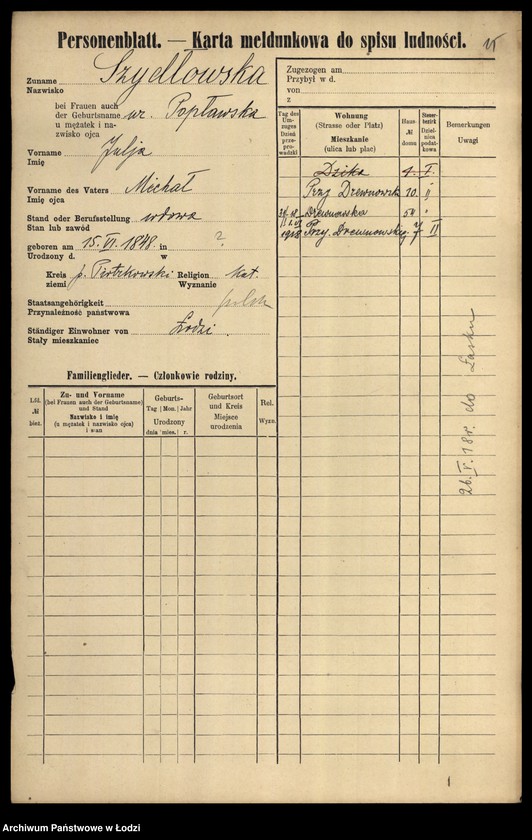 Personenblatt. — Karta meldunkowa do spisu ludności.
Zuname Szydłowska
Nazwisko
bei Frauen auch
der Geburtsname ur. Popławska
u mężatek i na-
zwisko ojca
Vorname Julja
Imię
Vorname des Vaters Michał
Imię ojca
Stand oder Berufsstellung wdowa
Stan lub zawód
geboren am 15. VI. 1848. in ?
Urodzony d. w
Kreis p. Piotrkowski Religion kat.
ziemi Wyznanie
Staatsangehörigkeit polsk
Przynależność państwowa
Ständiger Einwohner von Łodzi.
Stały mieszkaniec
Familienglieder. — Członkowie rodziny.
Lfd.
№
bież.
Zu- und Vorname
(bei Frauen auch der Geburtsname)
und Stand
Nazwisko i imię
(u mężatek i nazwisko ojca)
i stan
Geburts-
Tag Mon. Jahr
Urodzony
dnia mies. r.
Geburtsort
und Kreis
Miejsce
urodzenia
Rel.
Wyzn.
Zugezogen am
Przybył w d.
von
z
Tag des
Um-
zuges
Dzień
prze-
prowadzki
Wohnung
(Strasse oder Platz)
Mieszkanie
(ulica lub plac)
Haus-
№
domu
Steuer-
bezirk
Dziel-
nica
podat-
kowa
Bemerkungen
Uwagi
Dzika 4. I.
Przy Drewnowsk 10. II
Drewnowska 54 "
1918 Przy. Drewnowskiej 7 II
26. V. 18 r. do Łasku
Archiwum Państwowe w Łodzi